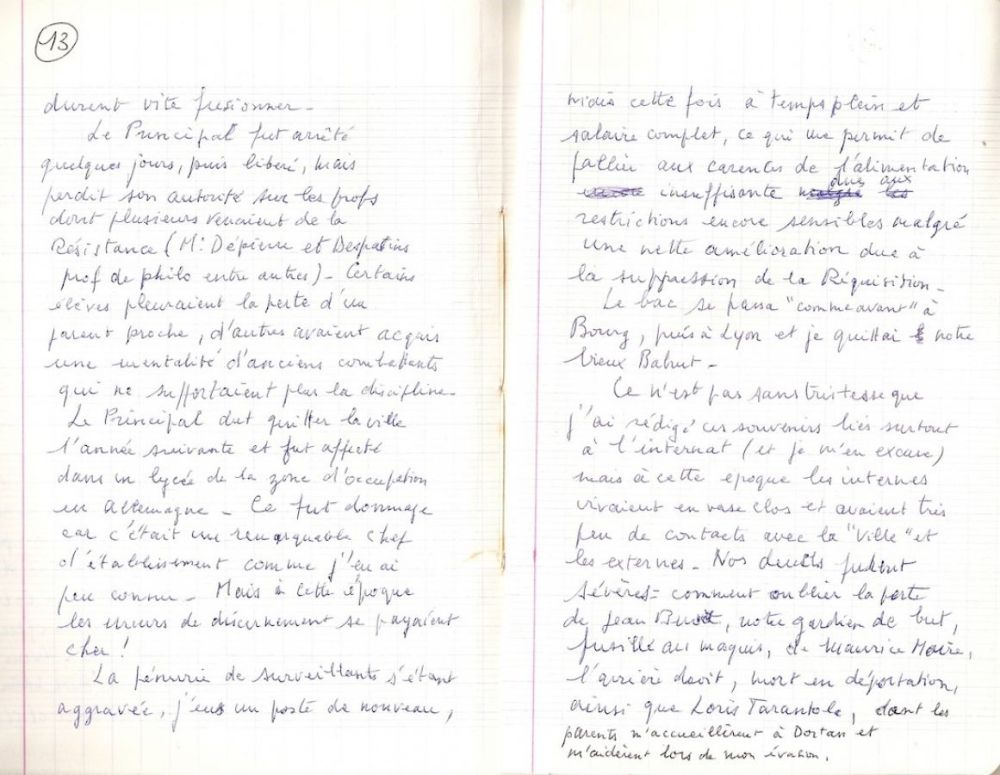 13
durent vite fusionner -
Le Principal fut arrêté
quelques jours, puis libéré, mais
perdit son autorité sur les profs
dont plusieurs venaient de la
Résistance (Mr Depierre et Despatins
prof de philo entre autres) - Certains
élèves pleuraient la perte d'un
parent proche, d'autres avaient acquis
une mentalité d'anciens combattants
qui ne supportaient plus la discipline -
Le Principal dut quitter la ville
l'année suivante et fut affecté
dans un lycée de la zone d'occupation
en Allemagne - Ce fut dommage
car c'était un remarquable chef
d'établissement comme j'en ai
peu connu - Mais à cette époque
les erreurs de discernement se payaient
cher !
La pénurie de surveillants s'étant
aggravée, j'eus un poste de nouveau,
mais cette fois à temps plein et
salaire complet, ce qui me permit de
pallier aux carences de l'alimentation
insuffisante dues aux
restrictions encore sensibles malgré
une nette amélioration due à
la suppression de la Réquisition -
Le bac se passa "comme avant" à
Bourg, puis à Lyon et je quittai notre
vieux Bahut -
Ce n'est pas sans tristesse que
j'ai rédigé ces souvenirs liés surtout
à l'internat (et je m'en excuse)
mais à cette époque les internes
vivaient en vase clos et avaient très
peu de contacts avec la "ville" et
les externes - Nos deuils furent
sévères = comment oublier la perte
de Jean, notre gardien de but,
fusillé au maquis, de Maurice
l'arrière droit, mort en déportation,
ainsi que Loris Tarantole, dont les
parents m'accueillirent à Dortan et
m'aidèrent lors de mon évasion.